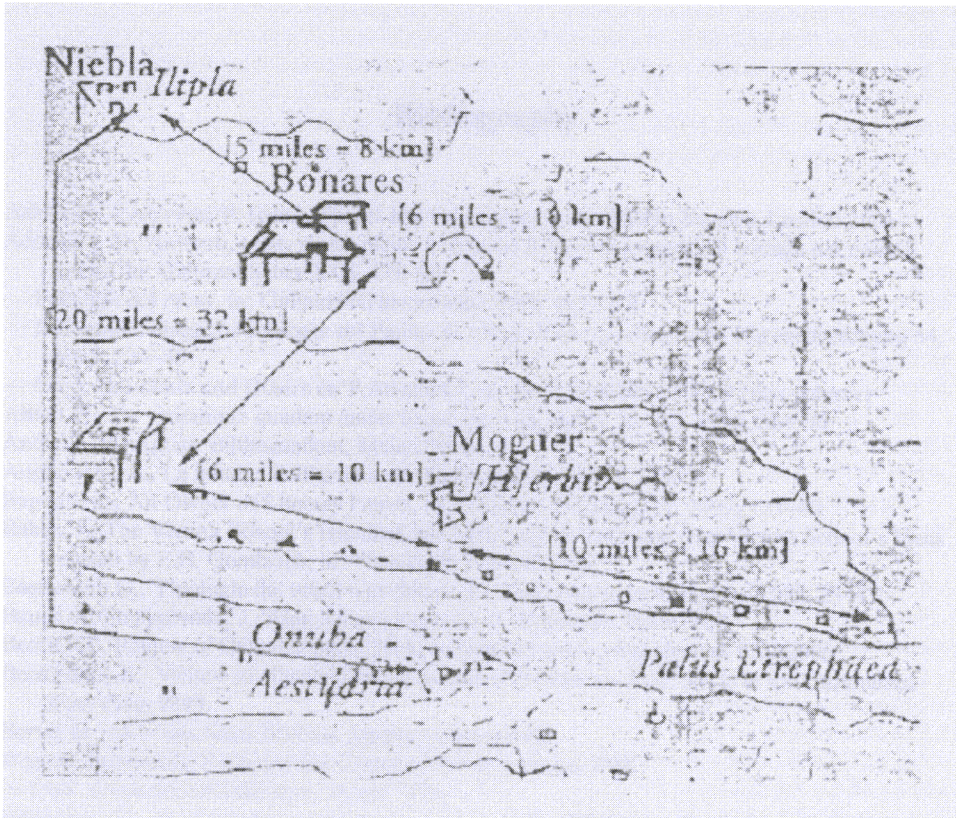 Niebla
Ilipla
[5 miles = 8 km]
Bonares
[6 miles = 10 km]
[20 miles = 32 km]
Moguer
[6 miles = 10 km]
[10 miles = 16 km]
Onuba
Aestuaria
Palus Etrephaea